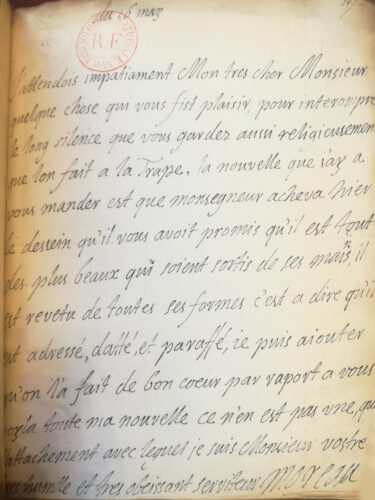 du 16 may
BIBLIOTHEQUE NATIONALE
R.F.
MANUSCRITS
J'attendois impatiament Mon tres cher Monsieur
quelque chose qui vous fist plaisir, pour interompre
le long silence que vous gardez aussi religieusement
que lon fait a la Trape, la nouvelle que i'ay a
vous mander est que monsegneur acheva hier
le dessein qu'il vous avoit promis qu'il est tout
des plus beaux qui soient sortis de ses mains, il
est revetu de toutes ses formes c'est a dire qu'il
est adressé, datté, et paraffé, ie puis aiouter
qu'on l'a fait de bon coeur par raport a vous
voyla toute ma nouvelle ce n'en est pas une, que
l'attachement avec lequel je suis Monsieur vostre
tres humble et tres obeissant serviteur